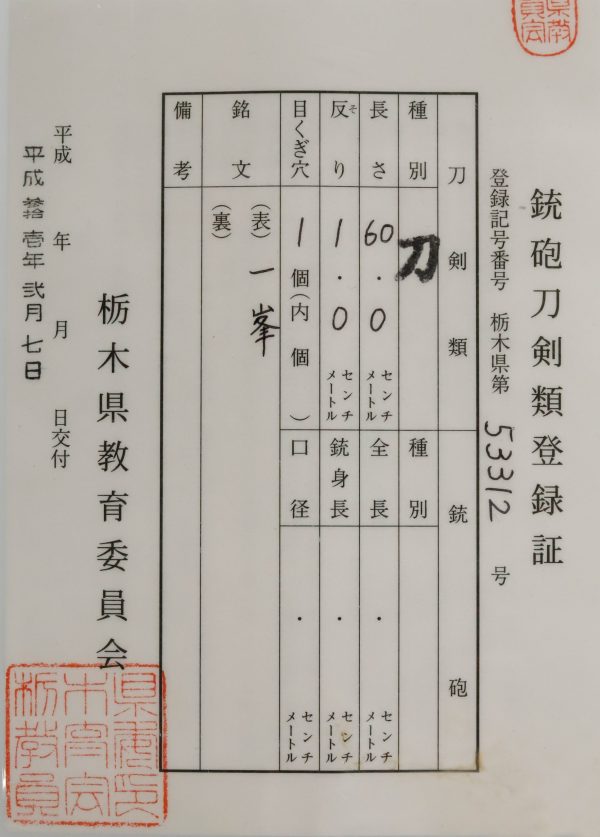 銃砲刀剣類登録証
登録記号番号 栃木県第 53312 号
刀剣類
銃砲
種別 刀
種別
長さ 60.0 センチメートル
全長 . センチメートル
反り 1.0 センチメートル
そ
銃身長 . センチメートル
目くぎ穴 1個(内 個)
口径 . センチメートル
銘文 (表) 一峯
(裏)
備考
栃木県教育委員会
平成 年 月 日交付
平成拾壱年弐月七日